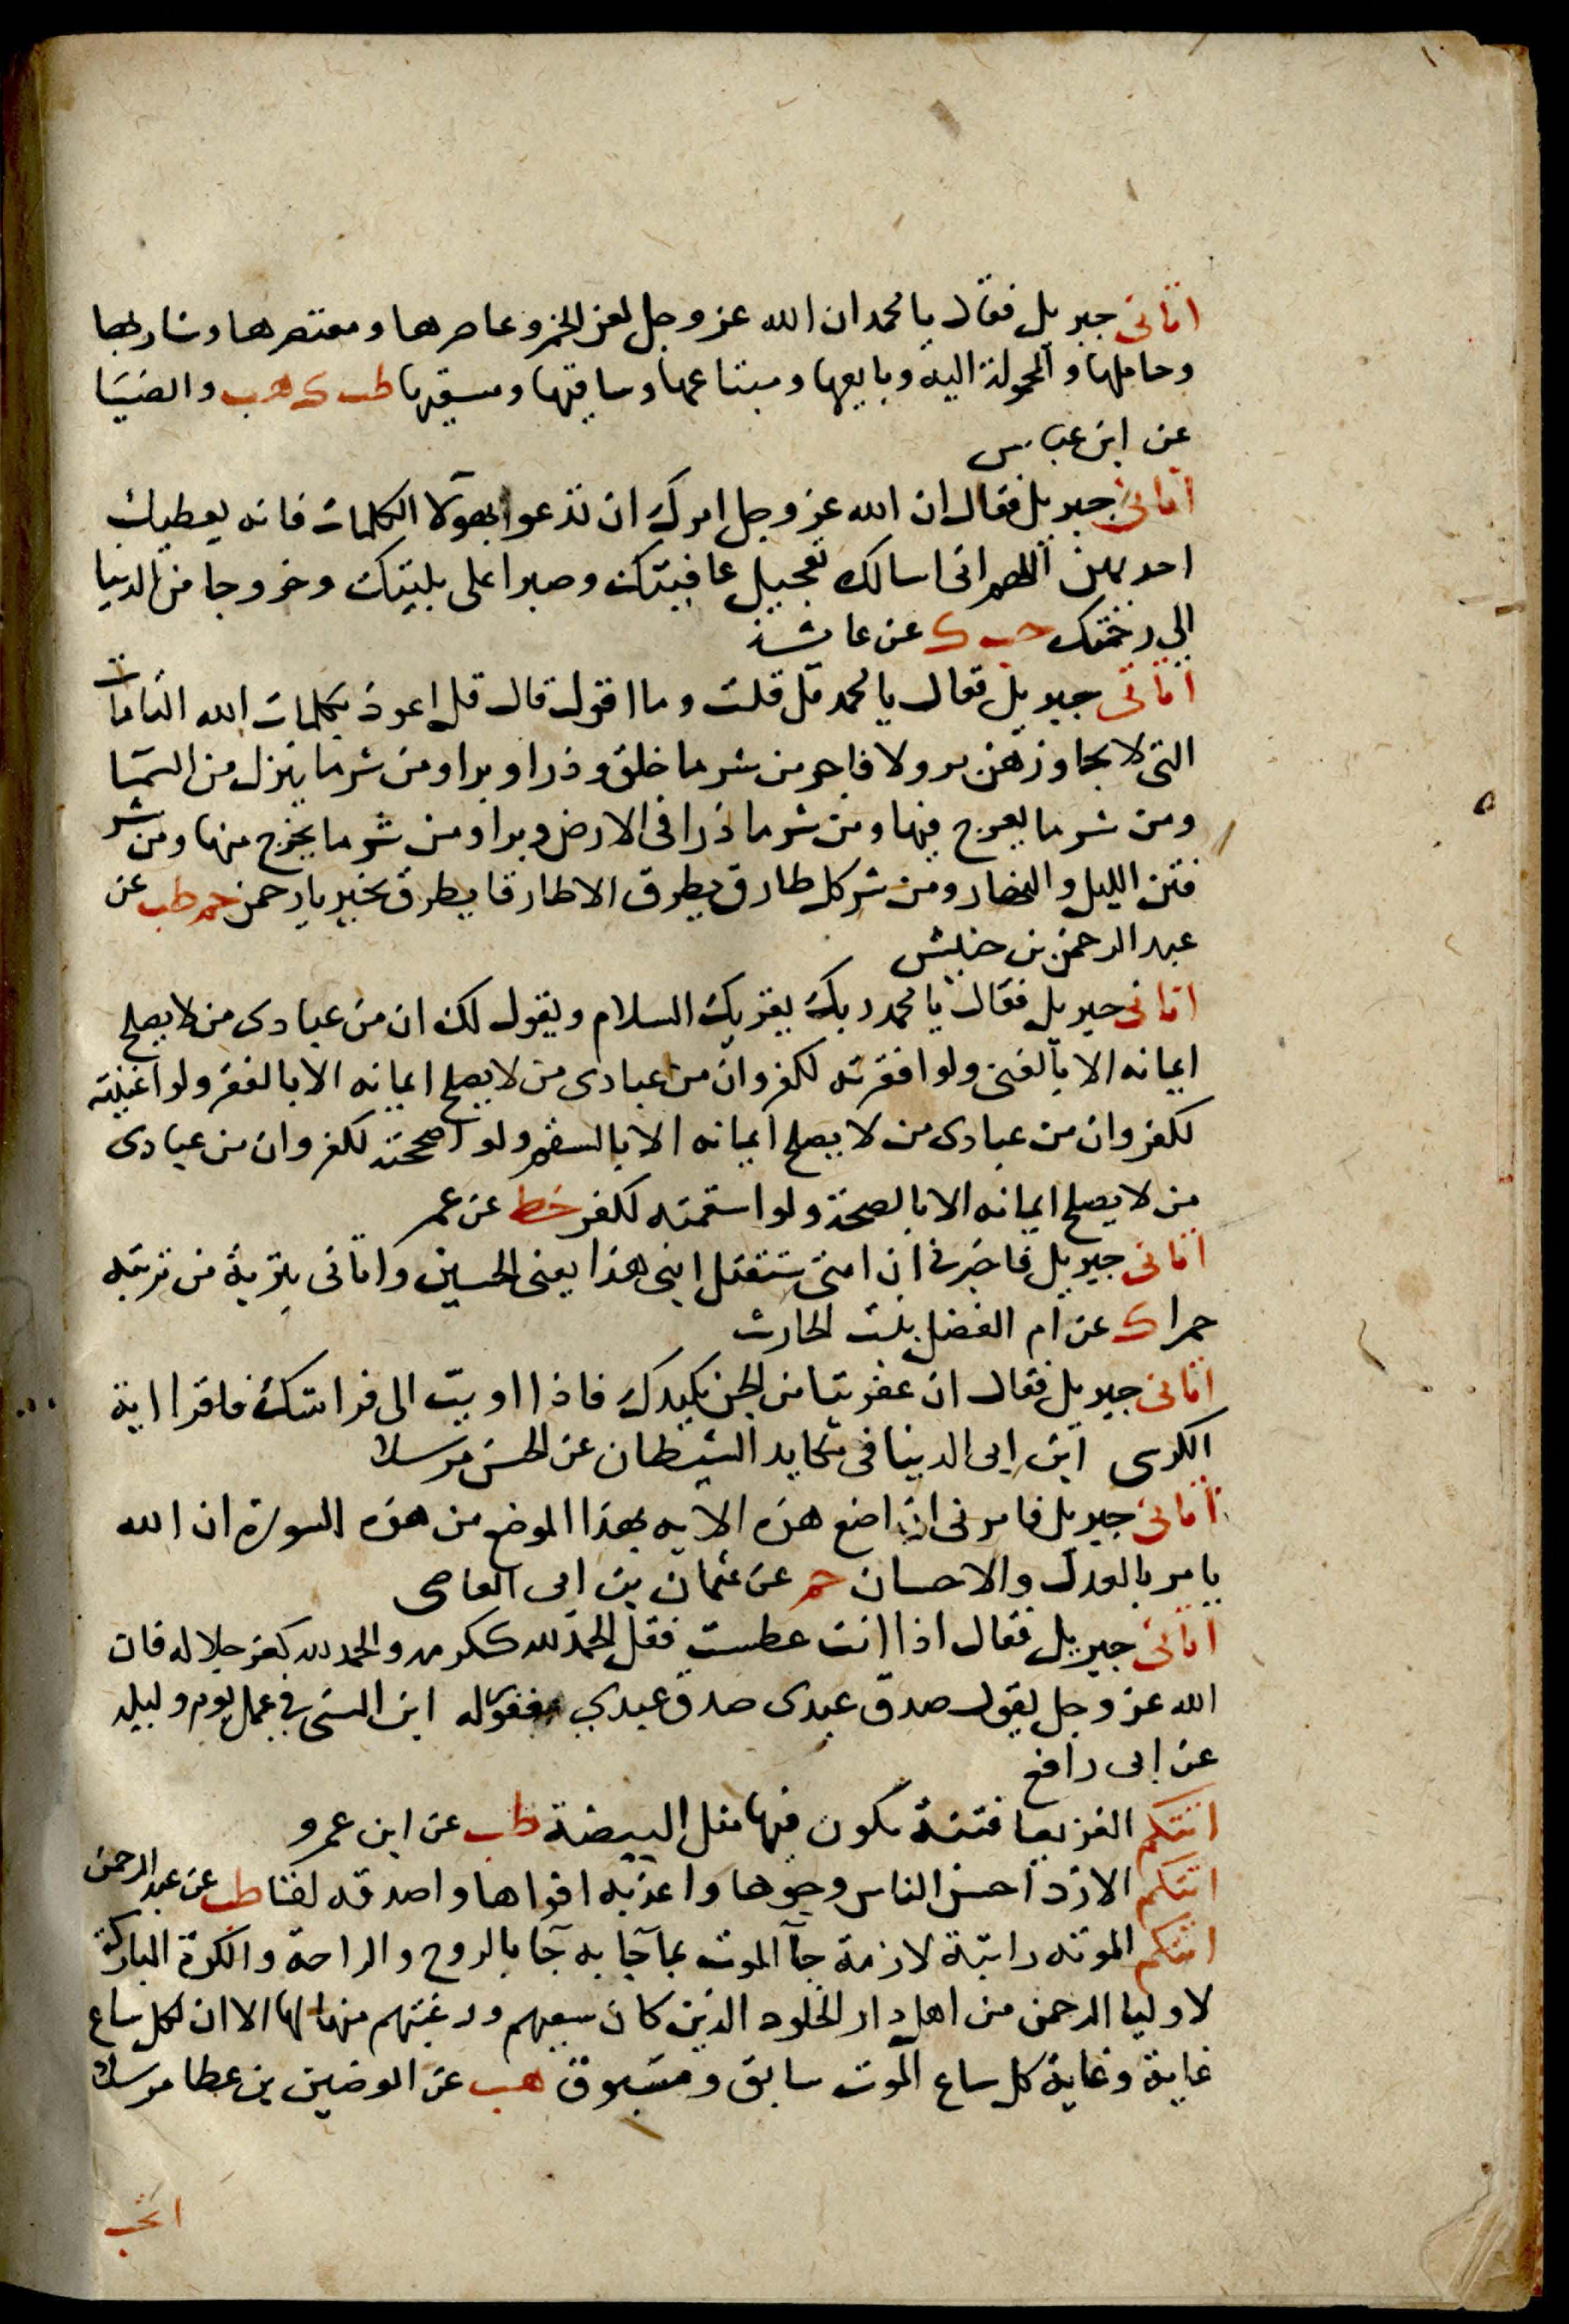 ١٠
اتانى جبريل فقال يا محمد ان الله عز وجل لعن الخمر وعاصرها ومعتصرها وشاربها
وحاملها والمحمولة اليه وبايعها ومبتاعها وساقيها ومسقيها طب ك هب والضيا
عن ابن عباس
اتانى جبريل فقال ان الله عز وجل امرك ان تدعوا بهولا الكلمات فانه يعطيك
احديهن اللهم انى اسالك تعجيل عافيتك وصبرا على بليتك وخروجا من الدنيا
الى رحمتك حب ك عن عايشة
اتانى جبريل فقال يا محمد قل قلت وما اقول قال قل اعوذ بكلمات الله التامات
التى لا يجاوزهن بر ولا فاجر من شر ما خلق وذرا وبرا ومن شر ما ينزل من السما
ومن شر ما يعرج فيها ومن شر ما ذرا فى الارض وبرا ومن شر ما يخرج منها ومن شر
فتن الليل والنهار ومن شر كل طارق يطرق الا طارقا يطرق بخير يا رحمن حم طب عن
عبد الرحمن بن خنبش
اتانى جبريل فقال يا محمد ربك يقريك السلام ويقول لك ان من عبادى من لا يصلح
ايمانه الا بالغنى ولو افقرته لكفر وان من عبادى من لا يصلح ايمانه الا بالفقر ولو اغنيته
لكفر وان من عبادى من لا يصلح ايمانه الا بالسقم ولو اصححته لكفر وان من عبادى
من لا يصلح ايمانه الا بالصحة ولو اسقمته لكفر خط عن عمر
اتانى جبريل فاخبرنى ان امتى ستقتل ابنى هذا يعنى الحسين واتانى بتربة من تربته
حمرا ك عن ام الفضل بنت الحارث
اتانى جبريل فقال ان عفريتا من الجن يكيدك فاذا اويت الى فراشك فاقرا اية
الكرسى ابن ابى الدنيا فى مكايد الشيطان عن الحسن مرسلا
اتانى جبريل فامرنى ان اضع هذه الايه بهذا الموضع من هذه السورة ان الله
يامر بالعدل والاحسان حم عن عثمان بن ابى العاصى
اتانى جبريل فقال اذا انت عطست فقل الحمد لله ككرمه والحمد لله كعز جلاله فان
الله عز وجل يقول صدق عبدى صدق عبدي مغفورله ابن السنى في عمل يوم وليله
عن ابى رافع
اتتكم القريعا فتنة يكون فيها مثل البيضة طب عن ابن عمرو
اتتكم الازد احسن الناس وجوها واعذبه افواها واصدقه لقا طب عن عبد الرحمن
اتتكم الموته راتبة لازمة جآ الموت بما جآ به جآ بالروح والراحة والكرة المباركة
لاوليا الرحمن من اهل دار الخلود الذين كان سعيهم ورغبتهم فيها لها الا ان لكل ساع
غاية وغاية كل ساع الموت سابق ومسبوق هب عن الوضين بن عطا مرسلا
اتحب